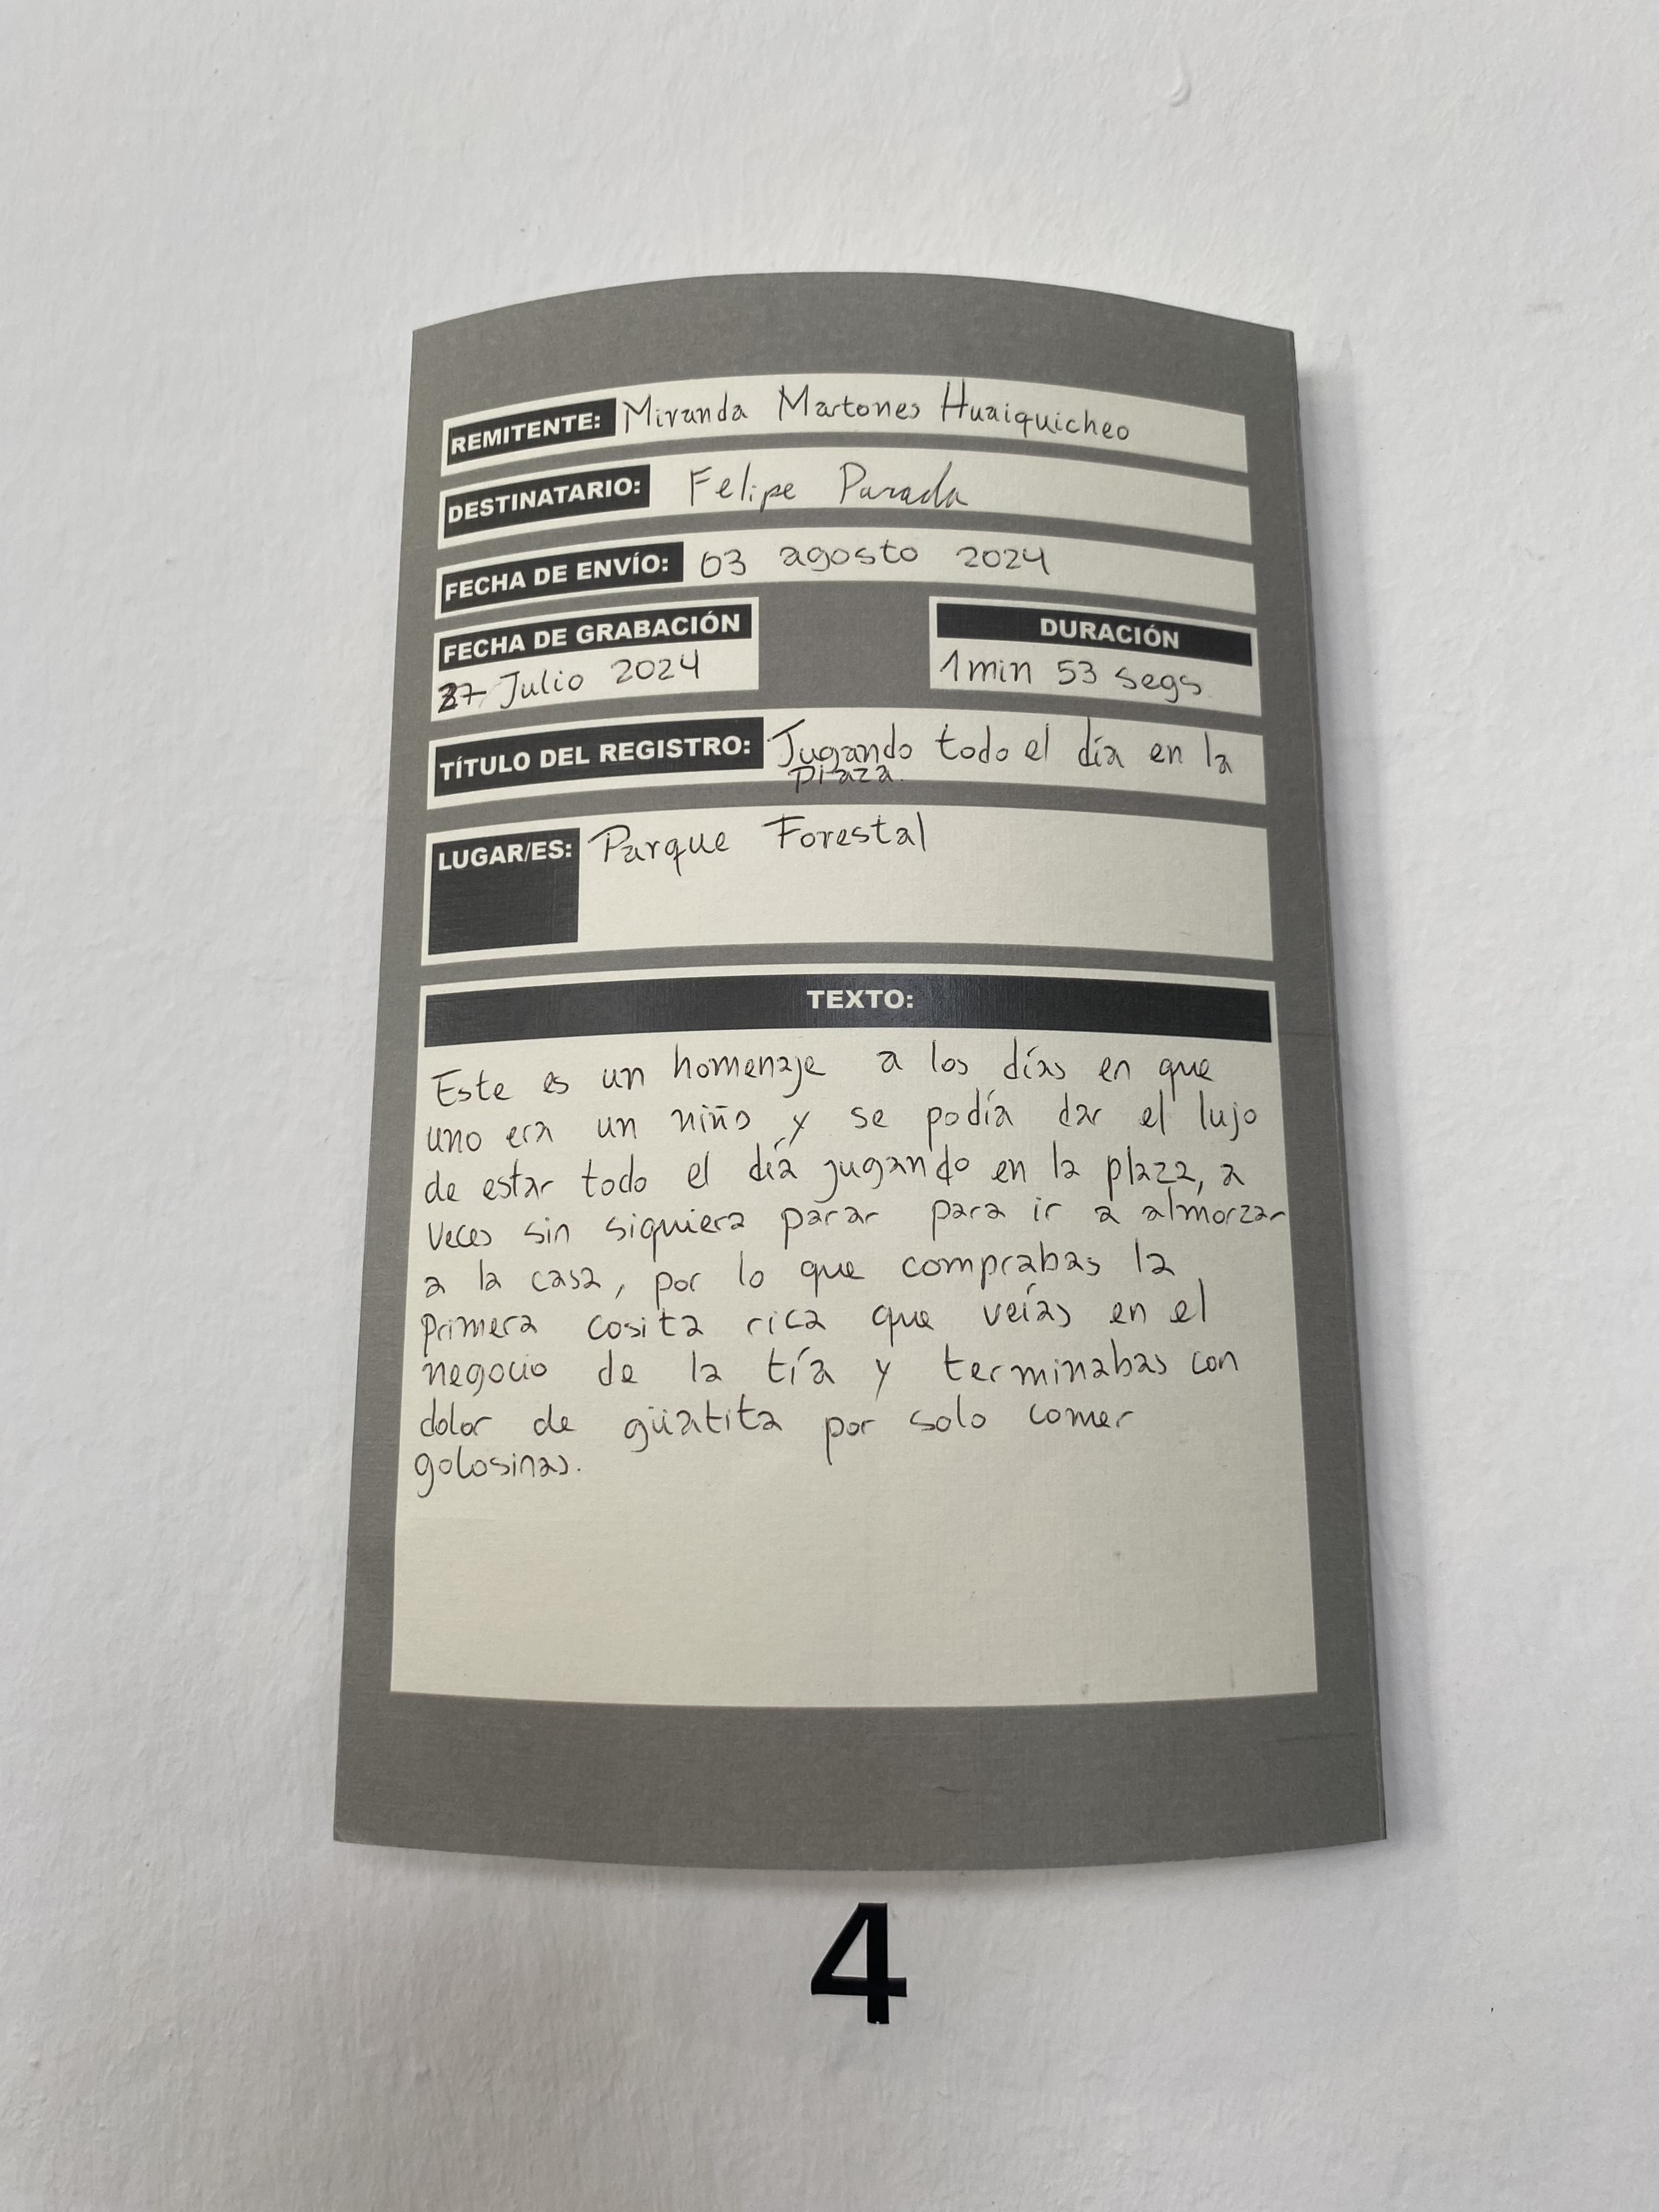 REMITENTE: Miranda Martones Huaiquicheo
DESTINATARIO: Felipe Parada
FECHA DE ENVÍO: 03 agosto 2024
FECHA DE GRABACIÓN
27 Julio 2024
DURACIÓN
1min 53 segs
TÍTULO DEL REGISTRO: Jugando todo el día en la
plaza.
LUGAR/ES: Parque Forestal
TEXTO:
Este es un homenaje a los días en que
uno era un niño y se podía dar el lujo
de estar todo el día jugando en la plaza, a
veces sin siquiera parar para ir a almorzar
a la casa, por lo que comprabas la
primera cosita rica que veías en el
negocio de la tía y terminabas con
dolor de güatita por solo comer
golosinas.
4